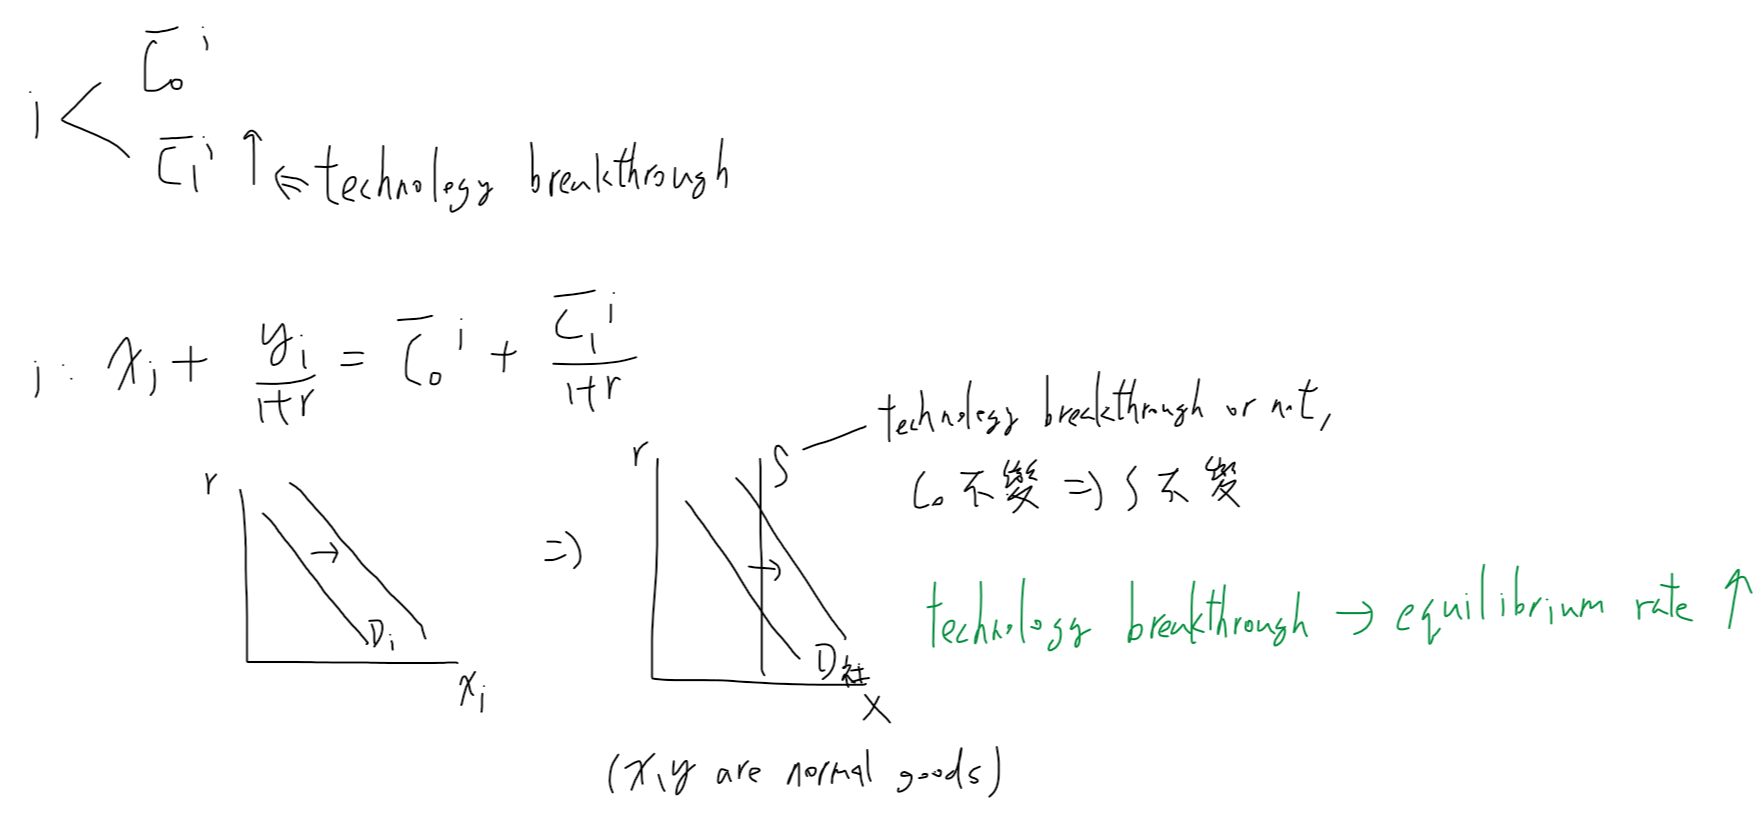 i < C̄₀ⁱ
C̄₁ⁱ ↑ ⇐ technology breakthrough
i: xᵢ + yᵢ/(1+r) = C̄₀ⁱ + C̄₁ⁱ/(1+r)
technology breakthrough or not,
C₀ 不變 => S 不變
r
Dᵢ
xᵢ
=>
r
S
D社
X
technology breakthrough → equilibrium rate ↑
(x, y are normal goods)